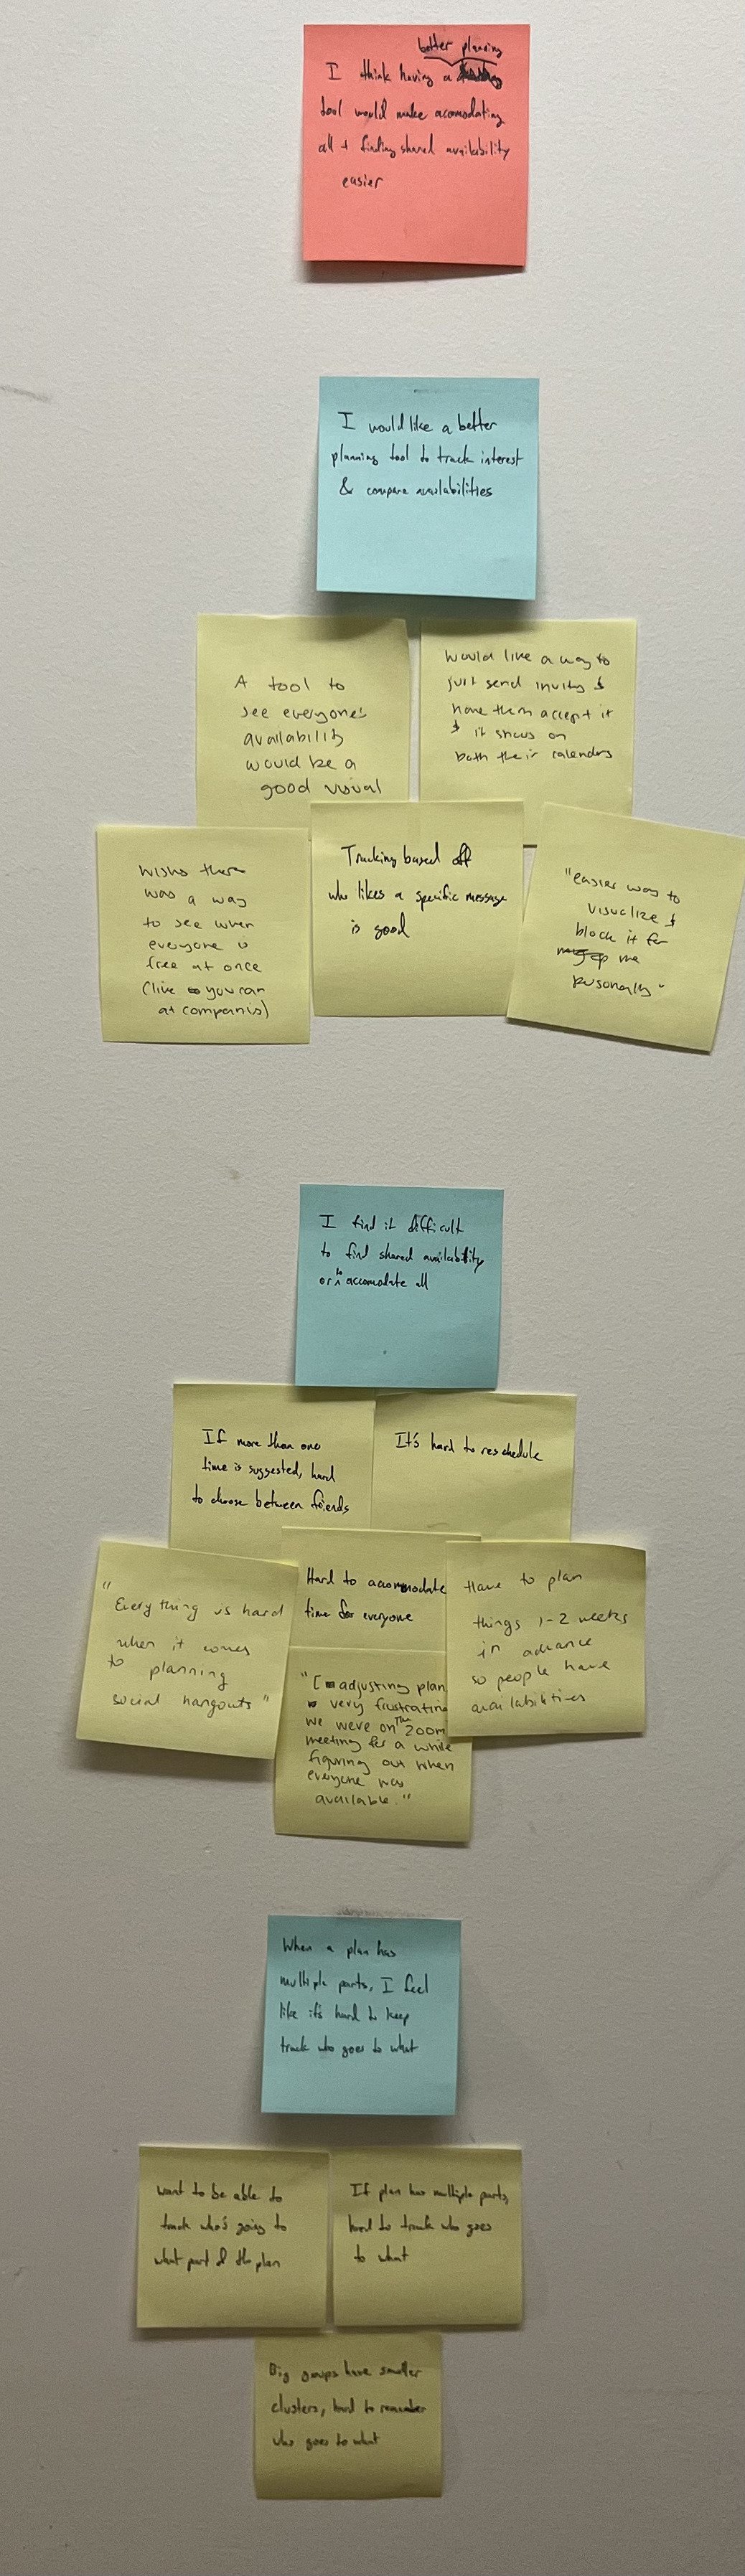 better planning
I think having a
tool would make acomodating
all + finding shared availability
easier
I would like a better
planning tool to track interest
& compare availabilities
A tool to
see everyone's
availability
would be a
good visual
Would like a way to
just send invites &
have them accept it
& it shows on
both their calendars
wishs there
was a way
to see when
everyone is
free at once
(like you can
at companies)
Tracking based off
who likes a specific message
is good
"easier way to
visualize &
block it for
me
personally"
I find it difficult
to find shared availability
or to accomodate all
If more than one
time is suggested, hard
to choose between friends
It's hard to reschedule
"Everything is hard
when it comes
to planning
social hangouts"
Hard to accommodate
time for everyone
Have to plan
things 1-2 weeks
in advance
so people have
availabilities
"[adjusting plan
very frustrating
we were on the zoom
meeting for a while
figuring out when
everyone was
available."
When a plan has
multiple parts, I feel
like it's hard to keep
track who goes to what
want to be able to
track who's going to
what part of the plan
If plan has multiple parts,
hard to track who goes
to what
Big groups have smaller
clusters, hard to remember
who goes to what